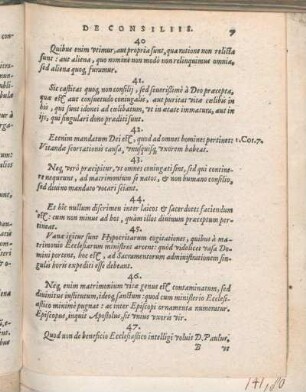 DE CONSILIIS. 9
40.
Quibus enim utimur, aut propria sunt, qua ratione non relicta
sunt: aut aliena, quo nomine non modò non relinquimus omnia,
sed aliena quoq, fucamur.
41.
Sic castitas quoq, non consilij, sed severissimè à Deo præcepta,
quæ est, aut consuetudo coniugalis, aut puritas vitæ cælibus in
his, qui sunt idonei ad cælibatum, vt in ætate immatura, aut in
ijs, qui singulari dono præditi sunt.
42.
Etenim mandatum Dei est, quod ad omnes homines pertinet: 1. Cor. 7.
Vitandæ scortationis causa, vnusquisq, vxorem habeat.
43.
Neq, verò præcipitur, vt omnes coniugati sint, sed qui contine-
re nequeunt, ad matrimonium se natos, & non humano consilio,
sed divino mandato vocari sciant.
44.
Et hîc nullum discrimen inter laicos & sacerdotes faciendum
est: cum non minus ad hos, quàm illos divinum præceptum per-
tineat.
45.
Vanæ igitur sunt Hypocritarum cogitationes, quibus à ma-
trimonio Ecclesiarum ministros arcent: quòd videlicet vasa Do-
mini portent, hoc est, ad Sacramentorum administrationem sin-
gulis horis expediti esse debeant.
46.
Neq, enim matrimonium vitæ genus est contaminatum, sed
divinitus institutum, ideoq, sanctum: quod cum ministerio Ecclesi-
astico minimè pugnat: ac inter Episcopi ornamenta numeratur.
Episcopus, inquit Apostolus, sit vnius vxoris vir.
47.
Quod non de beneficio Ecclesiastico intelligi voluit D. Paulus,
B vt